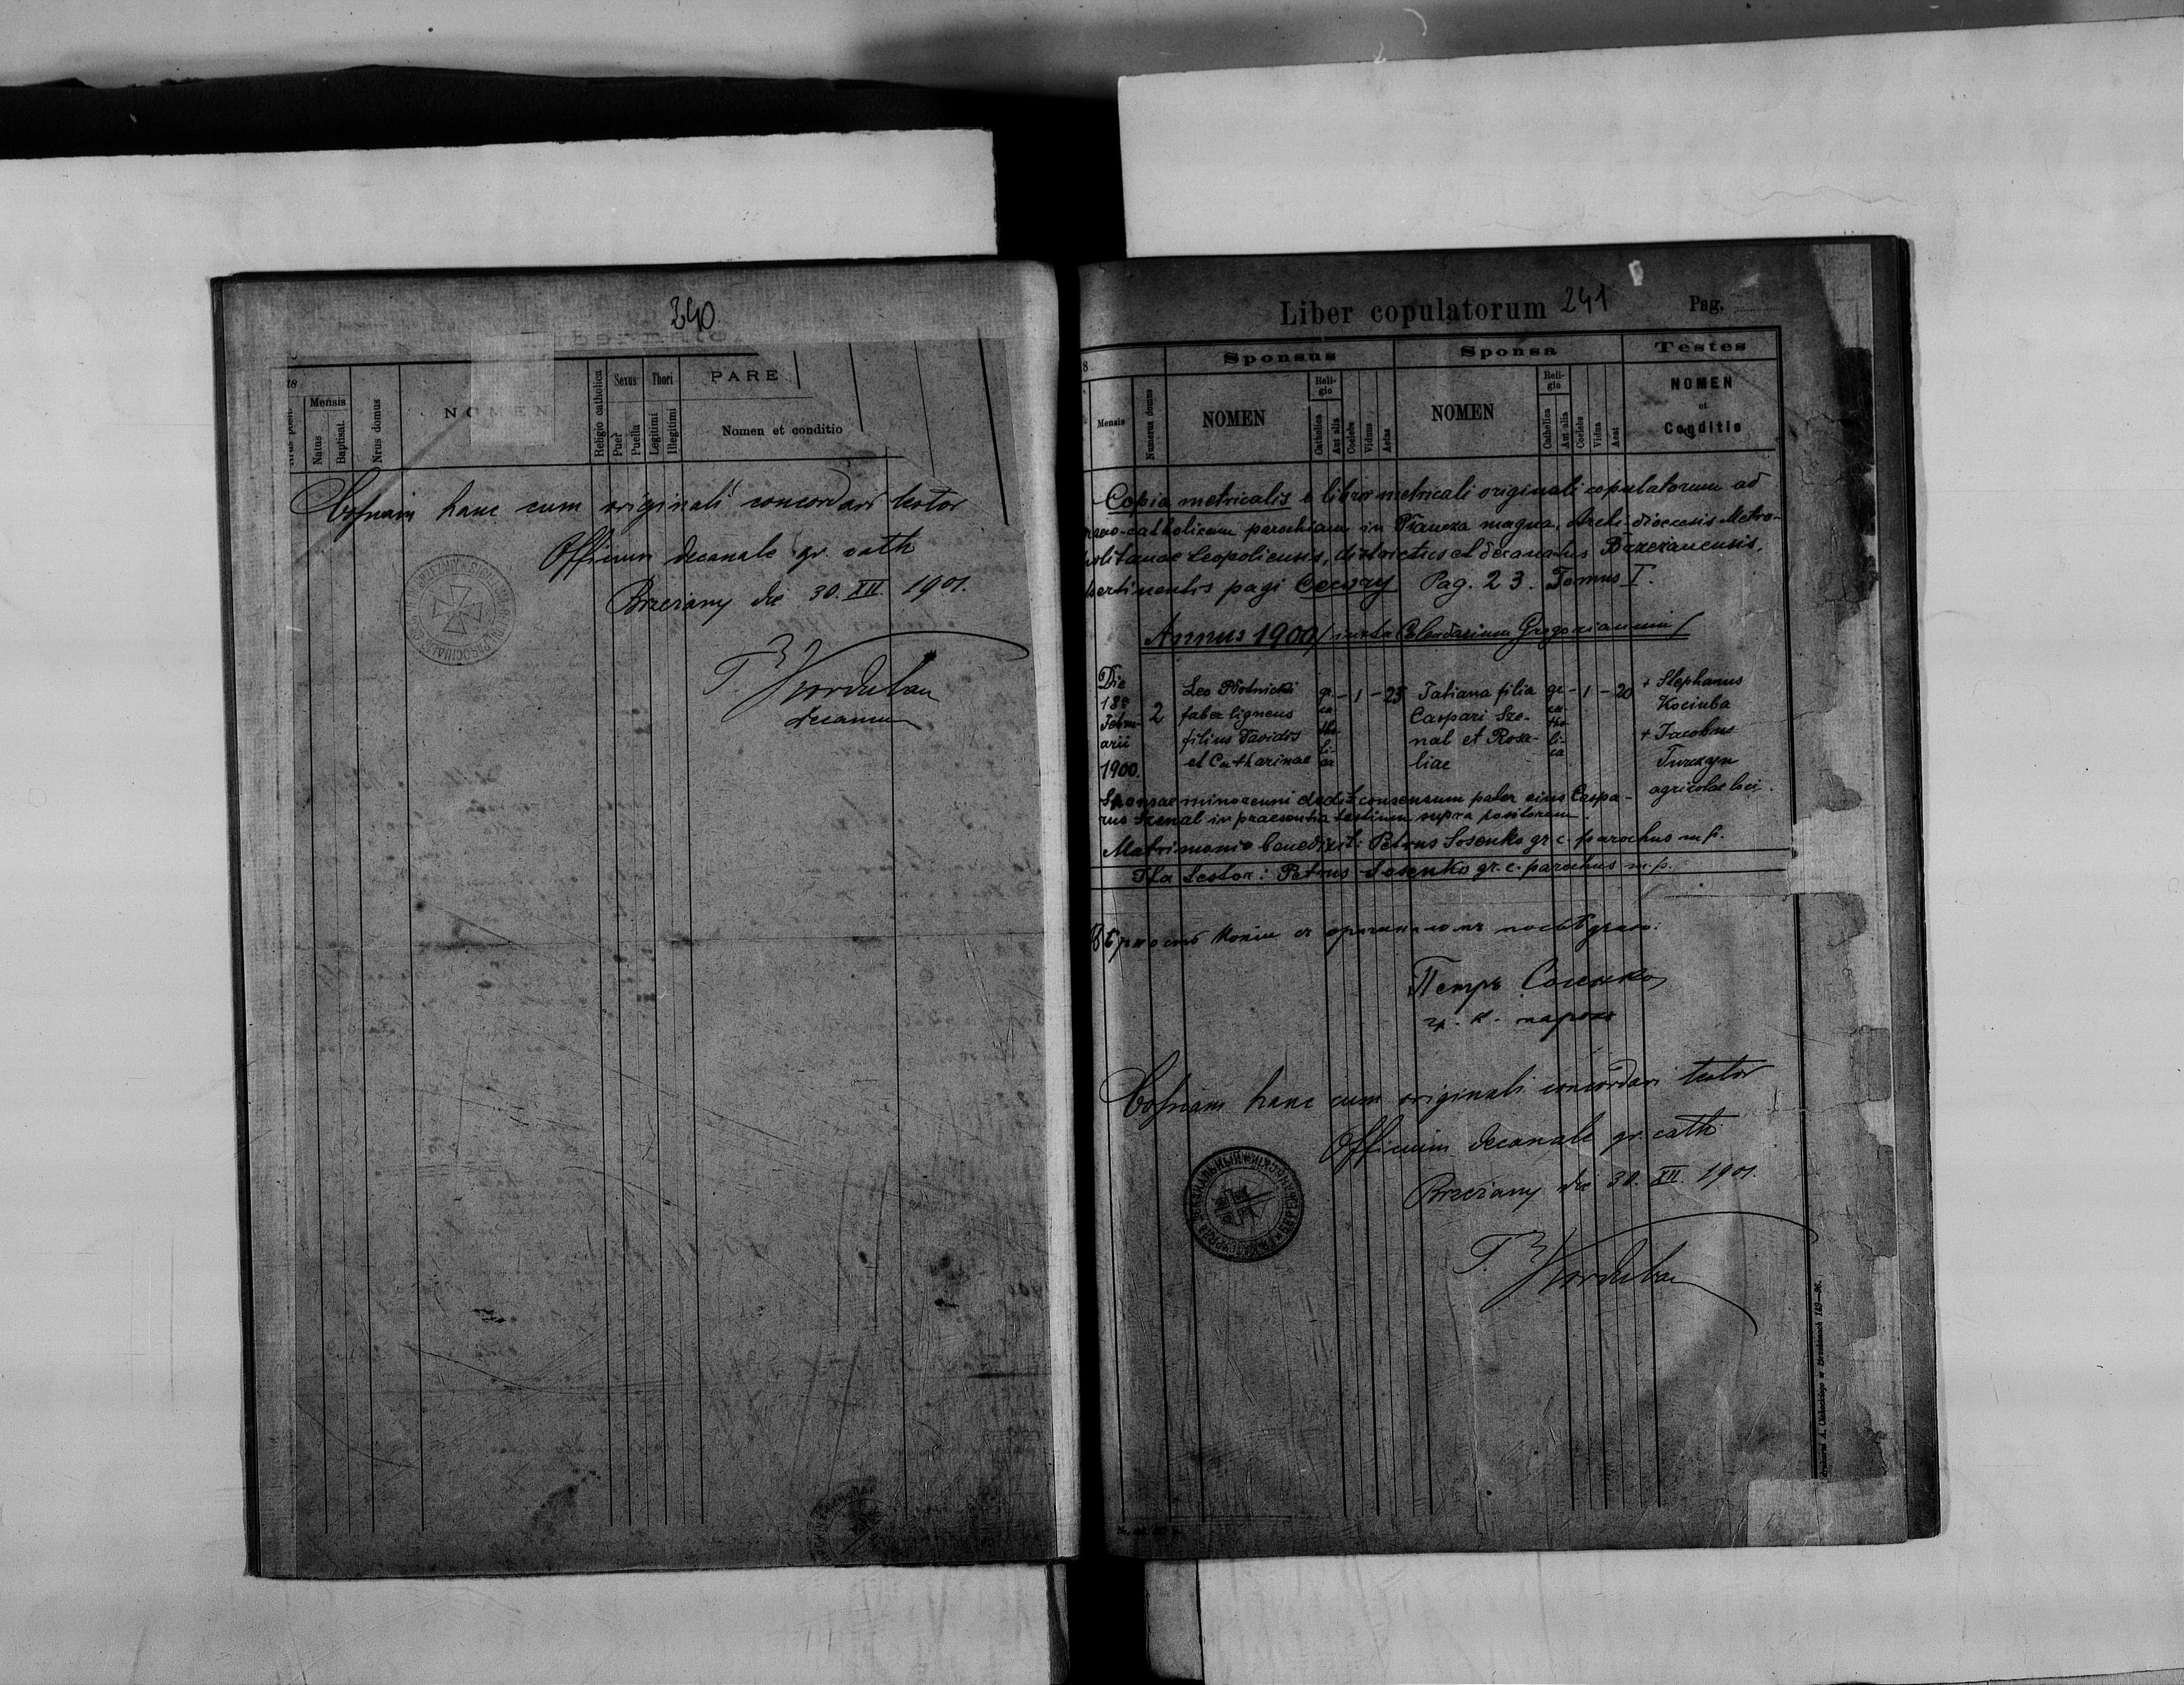 240.
18
Mensis
Natus
Baptisat.
Nrus domus
NOMEN
Religio catholica
Sexus
Puer
Puella
Thori
Legitimi
Illegitimi
PARE
Nomen et conditio
Copiam hanc cum originali concordari testor
Officium decanale gr. cath
Brzeżany die 30. XII. 1901.
T. Korduba
decanus
Liber copulatorum 241 Pag.
8
Sponsus
Sponsa
Testes
Mensis
Numerus domus
NOMEN
Reli-
gio
Catholica
Aut alia
Coelebs
Viduus
Aetas
NOMEN
Reli-
gio
Catholica
Aut alia
Coelebs
Vidua
Aetas
NOMEN
et
Conditio
Copia metricalis e libro metricali originali copulatorum ad
graeco-catholicam parochiam in Płaucza magna, Archi-dioecesis Metro-
politanae Leopoliensis, districtus et decanatus Brzeżanensis,
pertinentis pagi Cecory Pag. 23. Tomus I.
Annus 1900 / iuxta Calendarium Gregorianum /
Die
18a
Febru-
arii
1900.
2
Leo Płotnicki
faber ligneus
filius Davidis
et Catharinae
gr.
ca-
tho-
li-
ca
- 1 - 25
Tatiana filia
Caspari Sze-
nal et Rosa-
liae
gr
ca-
tho-
li-
ca
- 1 - 20
+ Stephanus
Kociuba
+ Jacobus
Turczyn
agricolae loci.
Sponsae minorenni dedit consensum pater eius Caspa-
rus Szenal in praesentia testium supra positorum.
Matrimonio benedixit: Petrus Sosenko gr. c. parochus m. p.
Ita testor: Petrus Sosenko gr. c. parochus m. p.
Петръ Сосенко
гр. к. парохъ
Copiam hanc cum originali concordari testor
Officium decanale gr. cath
Brzeżany die 30. XII. 1901.
T. Korduba